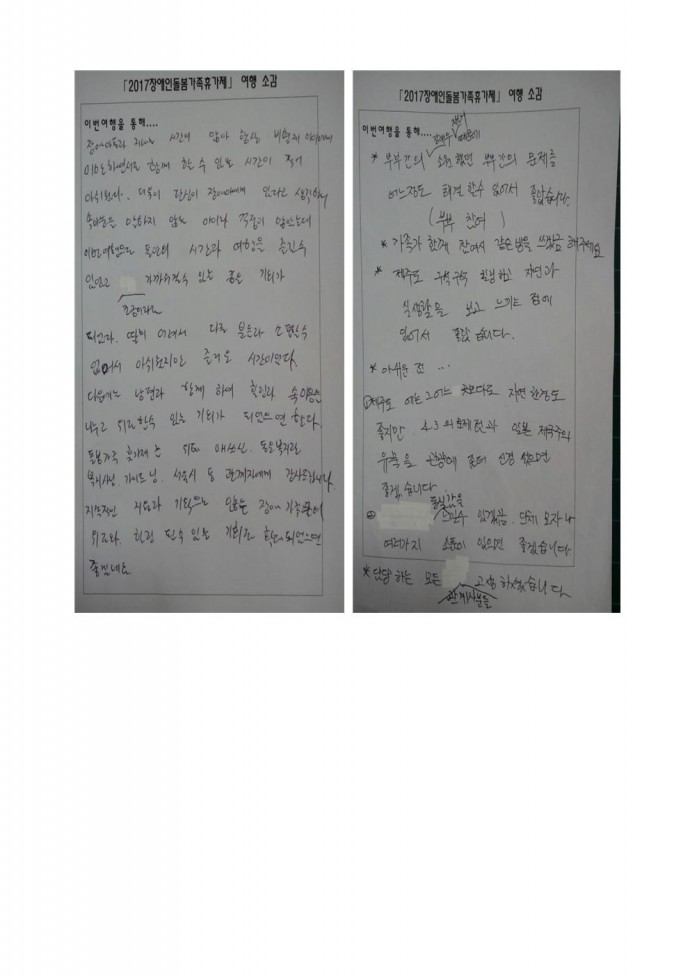 「2017장애인돌봄가족휴가제」 여행 소감
이번여행을 통해....
장애아동과 지내는 시간이 많아 항상 비장애 아이에게
미안해하면서도 함께 할 수 있는 시간이 적어
아쉬웠다. 더욱이 관심이 장애아에게 있다는 생각하니
아이라 걱정이 많았는데
이번여행으로 동안의 시간과 여행을 즐길수
있었고 가까워질수 있는 좋은 기회가
조금이라도
되었다. 딸이 어려서 다른 분들과 소통할수
없어서 아쉬웠지만 즐거운 시간이었다.
다음에는 남편과 함께 하여 힐링과 속이야기를
나누고 쉬고 할수 있는 기회가 되었으면 한다.
돌봄가족 휴가제 위해 애쓰신
복지사님, 가이드님, 서울시 등 관계자에게 감사드립니다.
지속적인 지원과 기획으로 많은 장애가족들이
쉬고와, 힐링 될수 있는 기회로 확대되었으면
좋겠네요
「2017장애인돌봄가족휴가제」 여행 소감
이번여행을 통해....
* 부부간의 소원했던 부부간의 문제를
어느정도 해결 할수 있어서 좋았습니다.
(부부 참여)
* 가족가 함께 잔여서 같은방을 쓰게끔 해주세요
* 제주도 구석구석 탐방하고 자연과
실생활을 보고 느끼는 점에
있어서 좋았습니다.
* 아쉬운 점 ...
① 제주도 에는 그어느 곳보다도 자연 환경도
좋지만 4.3의 흔적것과 일본 제국주의
유적을 관광에 좀더 신경 썼으면
좋겠습니다.
통일감을
② 느낄수 있게끔. 단체 모자나
여러가지 소품이 있으면 좋겠습니다
* 담당 하는 모든 고생하셨습니다
관계자분들